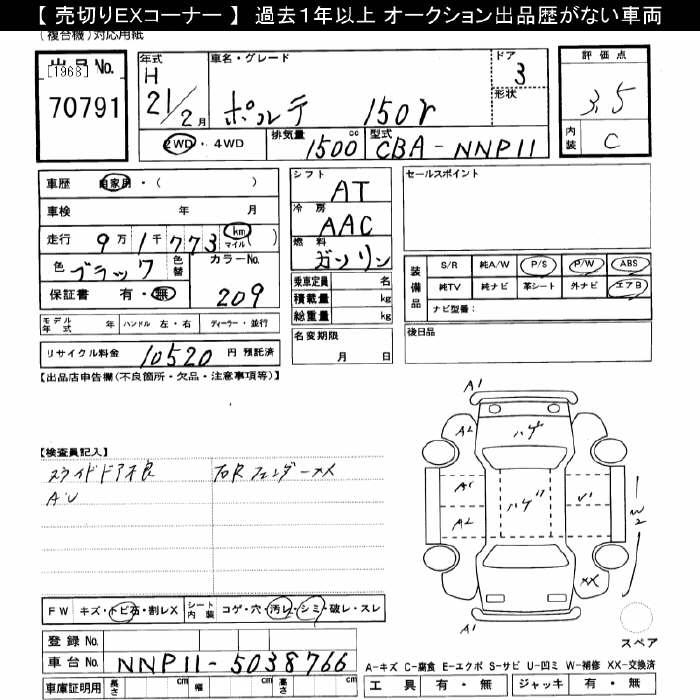 【 売切りEXコーナー 】 過去1年以上 オークション出品歴がない車両
(複合機)対応用紙
出品 No.
[1968]
70791
年式
H
21/2月
車名・グレード
ポルテ 150r
ドア
3
形状
2WD・4WD
排気量
1500 cc
型式
CBA-NNP11
評価点
3.5
内装
C
車歴 自家用・( )
車検 年 月
走行 9万1千773 km マイル ( )
色 ブラック
色替
カラーNo.
209
保証書 有・無
モデル年式 年 ハンドル 左・右 ディーラー・並行
リサイクル料金 10520 円 預託済
シフト
AT
冷房
AAC
燃料
ガソリン
乗車定員 名
積載量 kg
総重量 kg
名変期限
月 日
セールスポイント
装備品
S/R 純A/W P/S P/W ABS
純TV 純ナビ 革シート 外ナビ エアB
ナビ型番:
後日品
【出品店申告欄(不良箇所・欠品・注意事項等)】
【検査員記入】
スライドドア不良 右Rフェンダーメメ
A・U
A1
A2
ハゲ
A1
A2
ハゲ
U1
W2
XX
A1
スペア
FW キズ・トビ石・割レX
シート内装 コゲ・穴・汚レ・シミ・破レ・スレ
登録 No.
車台 No. NNP11-5038766
車庫証明用 長さ cm 幅 cm 高さ cm
A-キズ C-腐食 E-エクボ S-サビ U-凹ミ W-補修 XX-交換済
工具 有・無 ジャッキ 有・無